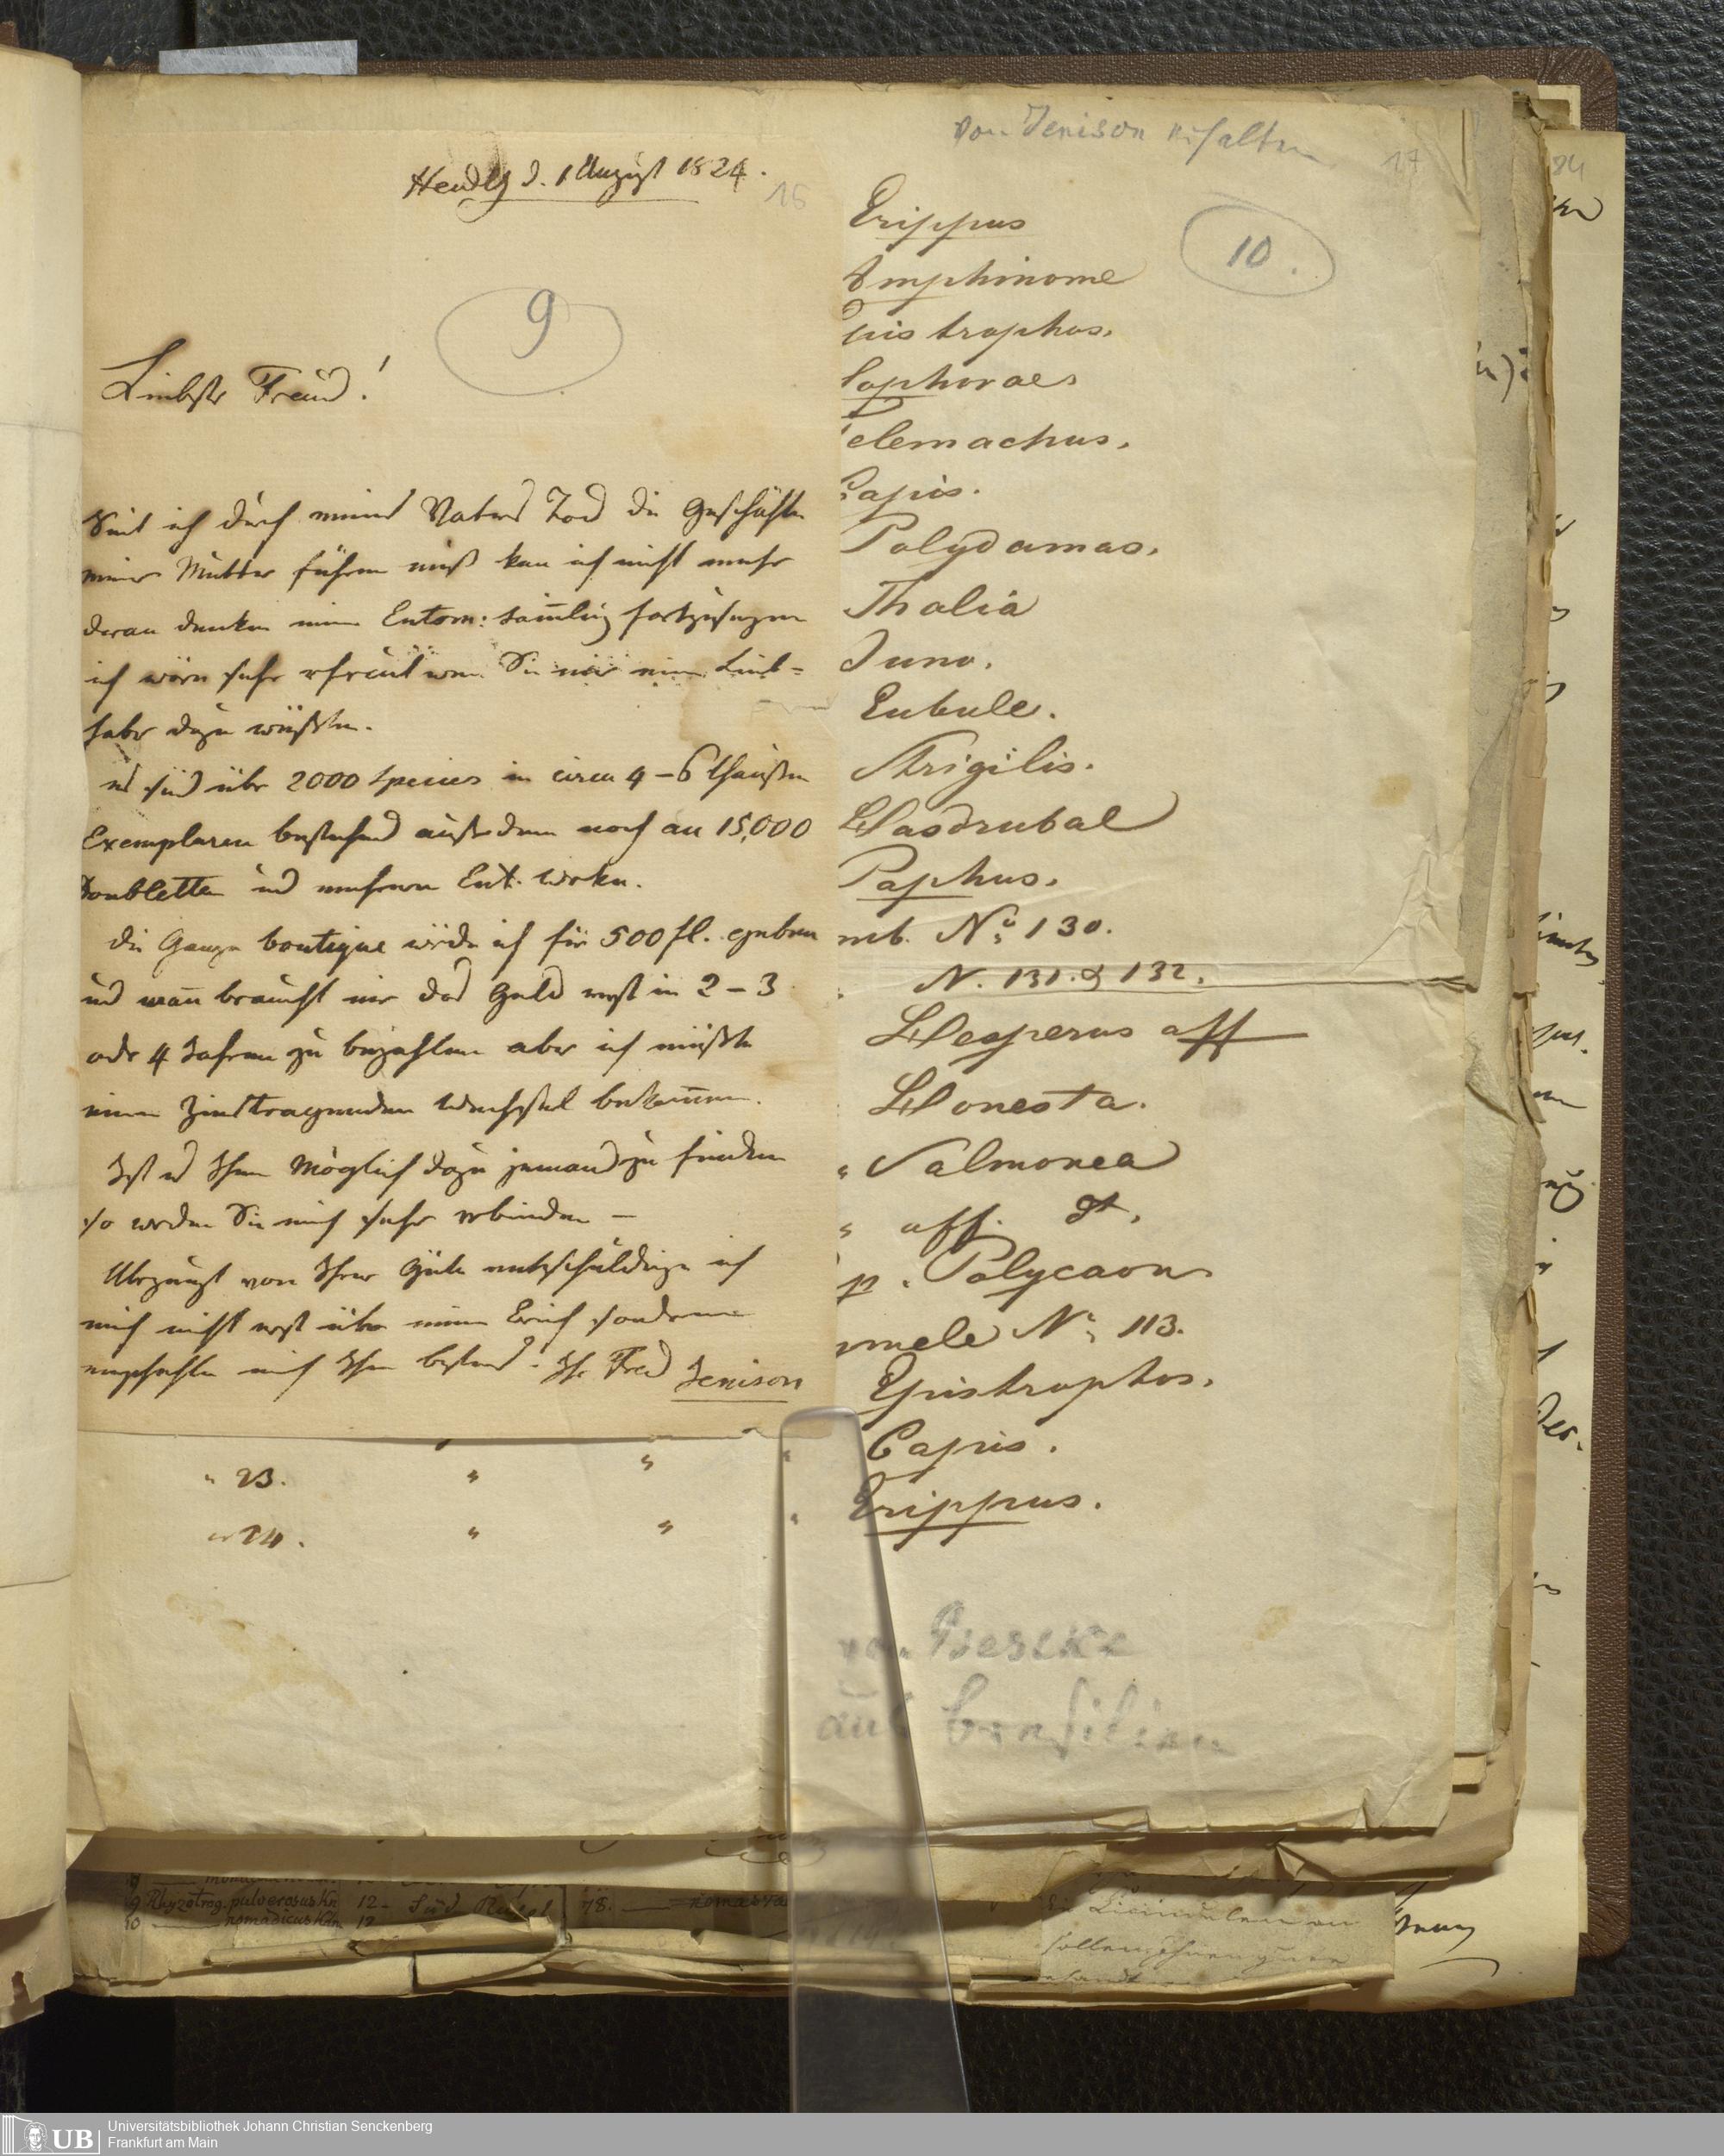 Heudlg d. 1 August 1824.
16
9
Liebster Freund!
Seit ich durch meines Vaters Tod die Geschäfte
meiner Mutter führen muß kan ich nicht mehr
daran denken meine Entom: Samlung fortzusezen
ich wäre sehr erfreut wen Sie mir einen Lieb=
haber dazu wüßten.
es sind über 2000 Species in circa 4-6 thausen
Exemplaren bestehend außerdem noch an 15,000
Doubletten und mehrere Ent. Werke.
die Ganze boutique würde ich für 500 fl. geben
und man braucht mir das Geld erst in 2-3
oder 4 Jahren zu bezahlen aber ich müßte
einen Zinstragenden Wechsel bekommen.
Ist es Ihnen Möglich dazu jemand zu finden
so werden Sie mich sehr verbinden -
Uberzeugt von Ihrer Güte entschuldige ich
mich nicht erst über meinen Brief sondern
empfehle mich Ihnen bestens. Ihr Freund Jenison
" 23. " "
" 24. " "
von Jenison erhalten
17
10.
Erippus
Amphinome
pistrophus.
Sophorae
elemachus.
Capis.
Polydamas.
Thalia
Juno.
Eubule.
Strigilis.
Hasdrubal
Paphus.
mb. No 130.
N. 131. & 132.
Hesperus aff
Honesta.
" Salmonea
" aff. dt.
p. Polycaon
mele No 113.
Epistrophos.
Capis.
Erippus.
von Beseke
aus Brasilien
9 Rhyzotrog. pulverosus Kn 12- Süd Rußl
10 nomadicus Kn. 12
78.
Universitätsbibliothek Johann Christian Senckenberg
Frankfurt am Main
UB